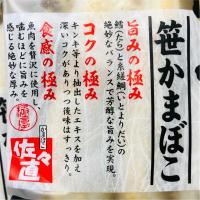 笹かまぼこ
旨みの極み
鱈(たら)と糸縒鯛(いとよりだい)の
絶妙なバランスで芳醇な旨みを実現。
コクの極み
キンキ等より抽出したエキスを加え
深いコクがありつつ後味はすっきり。
食感の極み
魚肉を贅沢に使用し、
噛むほどに旨みを
感じる絶妙な厚み。
かまぼこ
佐々直